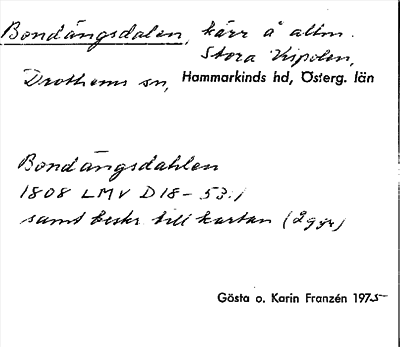 Bondängsdalen, kärr å allm.
Stora Vispolen,
Drothems sn, Hammarkinds hd, Österg. län
Bondängsdahlen
1808 LMV D18-53:1
samt beskr. till kartan (2ggr)
Gösta o. Karin Franzén 1975